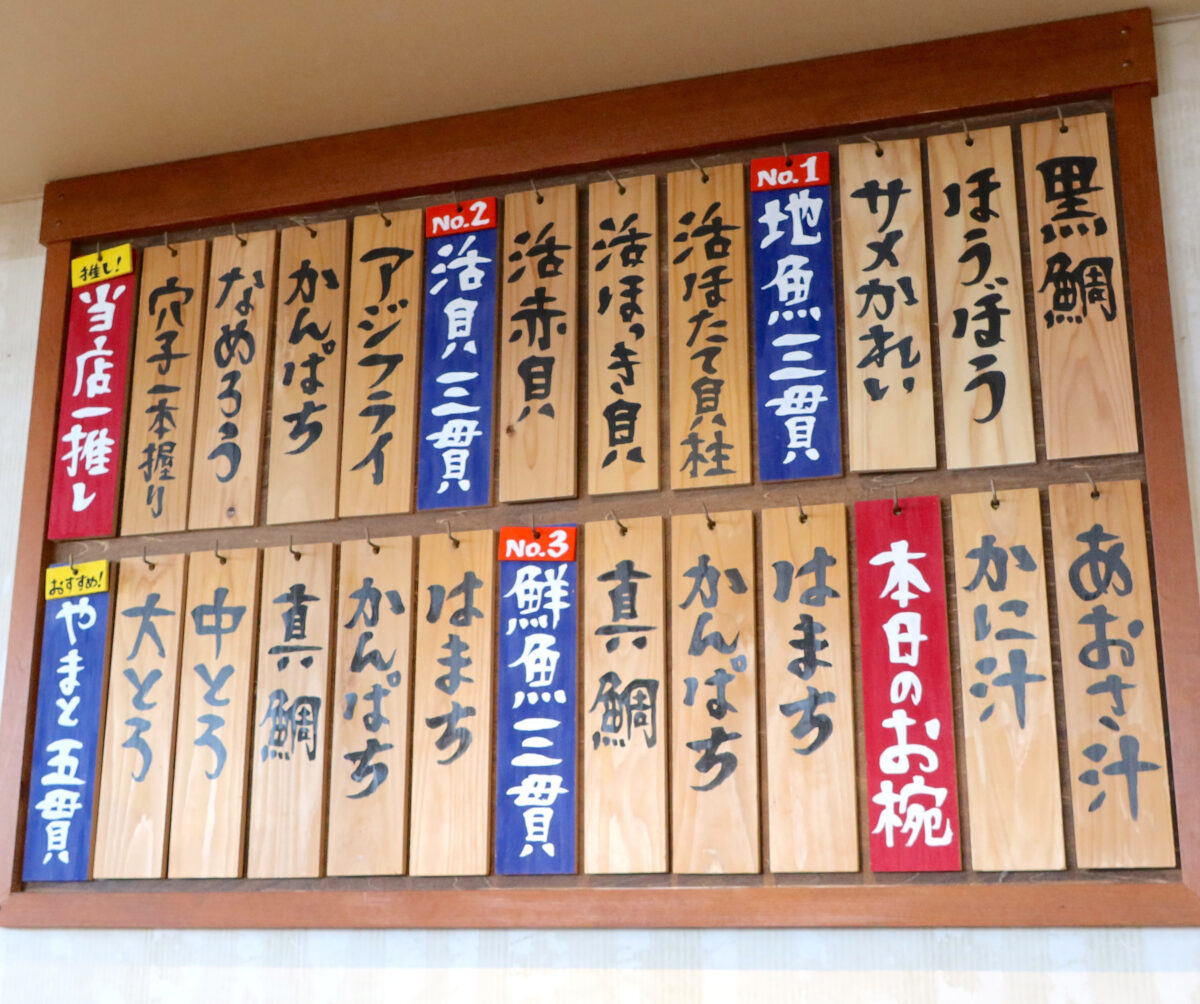 黒鯛
ほうぼう
サメかれい
No.1
地魚三貫
活ほたて貝柱
活ほっき貝
活赤貝
No.2
活貝三貫
アジフライ
かんぱち
なめろう
穴子一本握り
推し!
当店一推し
あおさ汁
かに汁
本日のお椀
はまち
かんぱち
真鯛
No.3
鮮魚三貫
はまち
かんぱち
真鯛
中とろ
大とろ
おすすめ!
やまと五貫